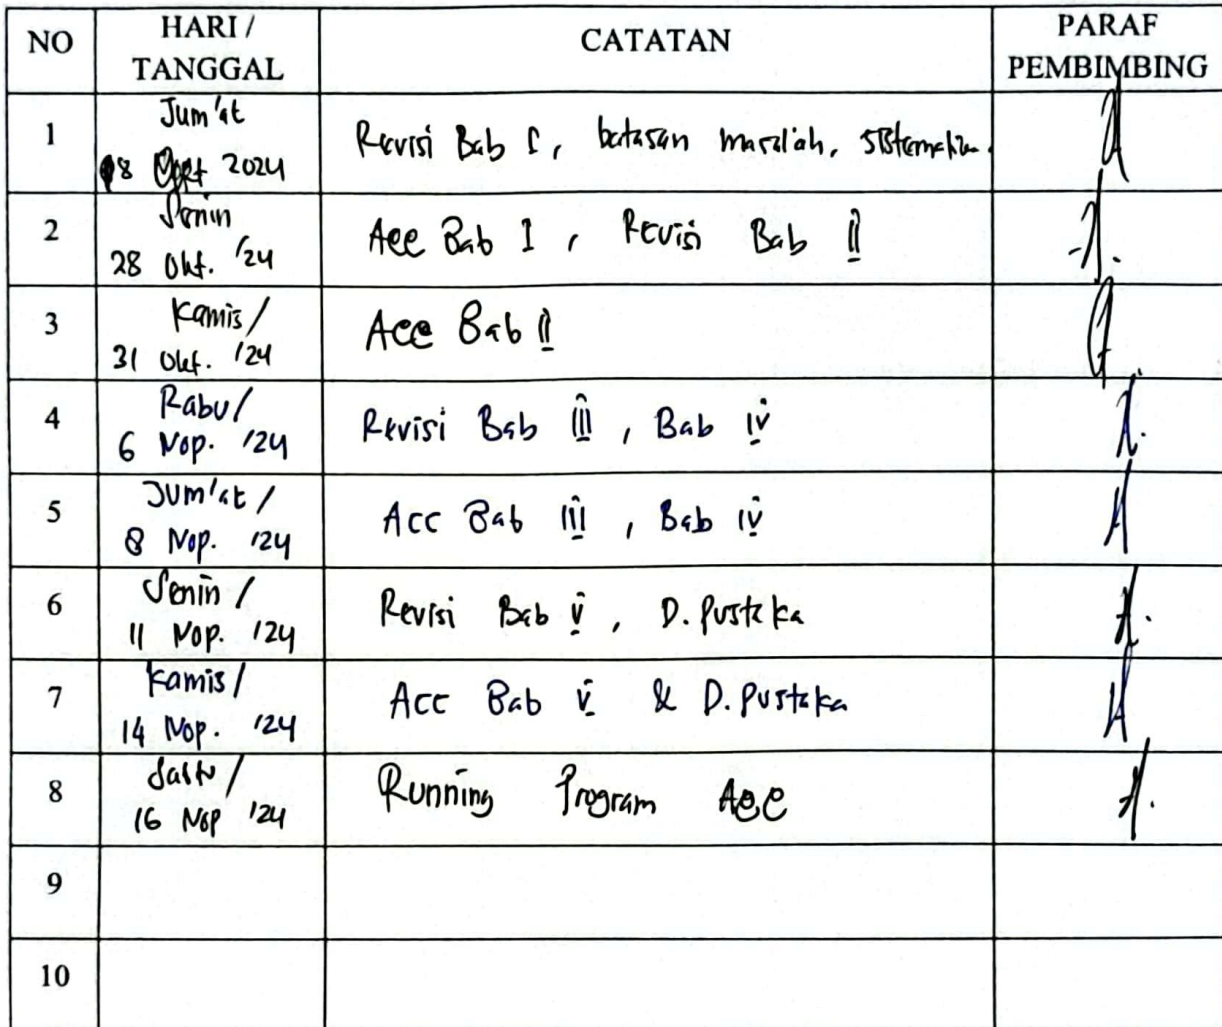 NO HARI / TANGGAL CATATAN PARAF PEMBIMBING
1 Jum'at 18 2024 Revisi Bab I, batasan masalah, sistematika.
2 Senin 28 Okt. '24 Acc Bab I, Revisi Bab II
3 Kamis/ 31 Okt. '24 Acc Bab II
4 Rabu/ 6 Nop. '24 Revisi Bab III, Bab IV
5 Jum'at/ 8 Nop. '24 Acc Bab III, Bab IV
6 Senin/ 11 Nop. '24 Revisi Bab V, D. Pustaka
7 Kamis/ 14 Nop. '24 Acc Bab V & D. Pustaka
8 Sabtu/ 16 Nop '24 Running Program Acc
9
10